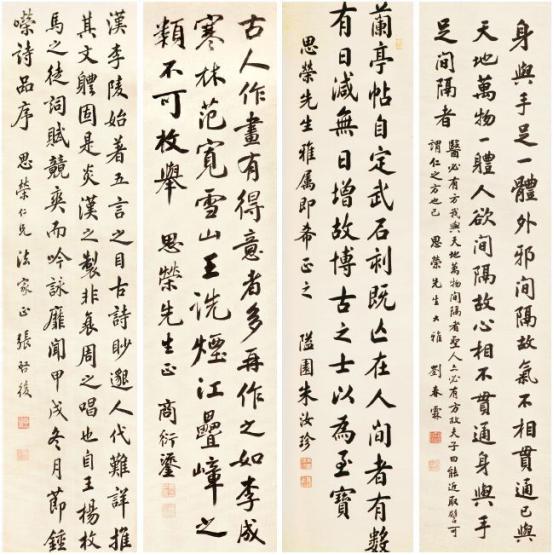 身與手足一體外邪間隔故氣不相貫通己與
天地萬物一體人欲間隔故心相不貫通身與手
足間隔者
醫必有方我與天地萬物間隔者聖人亦必有方故夫子曰能近取譬可
謂仁之方也已 思榮先生大雅 劉春霖
蘭亭帖自定武石刻既亡在人間者有數
有日減無日增故博古之士以為至寶
思榮先生雅屬即希正之 隘園朱汝珍
古人作畫有得意者多再作之如李成
寒林范寬雪山王詵煙江疊嶂之
類不可枚舉 思榮先生正 商衍鎏
漢李陵始著五言之目古詩眇邈人代難詳推
其文體固是炎漢之製非衰周之唱也自王楊枚
馬之徒詞賦競爽而吟詠靡聞甲戌冬月節鍾
嶸詩品序 思榮仁兄法家正 張啓後